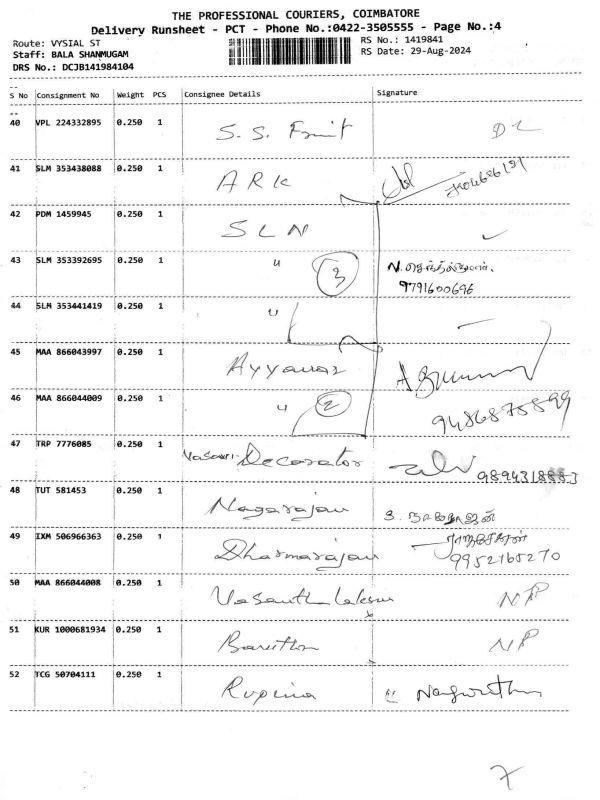 THE PROFESSIONAL COURIERS, COIMBATORE
Delivery Runsheet - PCT - Phone No.:0422-3505555 - Page No.:4
Route: VYSIAL ST
RS No.: 1419841
Staff: BALA SHANMUGAM
RS Date: 29-Aug-2024
DRS No.: DCJB141984104
S No Consignment No Weight PCS Consignee Details Signature
40 VPL 224332895 0.250 1 S. S. Fruit
41 SLM 353438088 0.250 1 ARK
42 PDM 1459945 0.250 1 SLN
43 SLM 353392695 0.250 1 " 3 N.
9791600696
44 SLM 353441419 0.250 1 "
45 MAA 866043997 0.250 1 Ayyanar
46 MAA 866044009 0.250 1 " 2
9486875899
47 TRP 7776085 0.250 1 Decorator
48 TUT 581453 0.250 1 Nagarajan
49 IXM 506966363 0.250 1 Dharmarajan
9952165270
50 MAA 866044008 0.250 1 NP
51 KUR 1000681934 0.250 1 NP
52 TCG 50704111 0.250 1
7